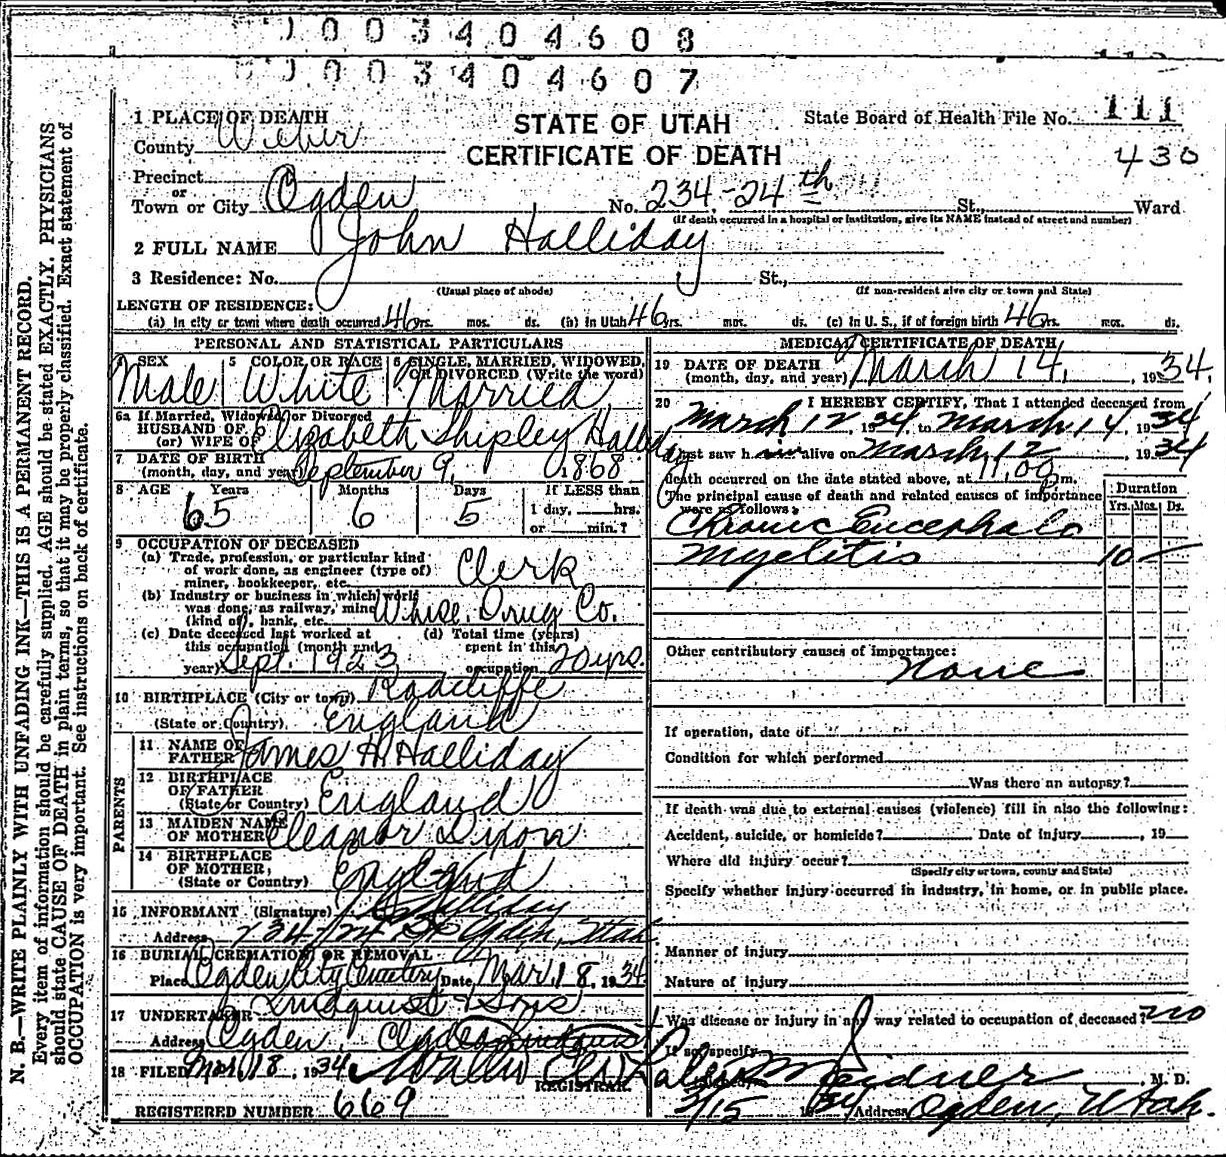 1003404608
1003404607
N. B.—WRITE PLAINLY WITH UNFADING INK—THIS IS A PERMANENT RECORD.
Every item of information should be carefully supplied. AGE should be stated EXACTLY. PHYSICIANS
should state CAUSE OF DEATH in plain terms, so that it may be properly classified. Exact statement of
OCCUPATION is very important. See instructions on back of certificate.
STATE OF UTAH
CERTIFICATE OF DEATH
State Board of Health File No. 111
430
1 PLACE OF DEATH
County Weber
Precinct
or
Town or City Ogden No. 234-24th St., Ward
(If death occurred in a hospital or institution, give its NAME instead of street and number)
2 FULL NAME John Halliday
3 Residence: No. St.,
(Usual place of abode) (If non-resident give city or town and State)
LENGTH OF RESIDENCE:
(a) In city or town where death occurred 46 yrs. mos. ds. (b) In Utah 46 yrs. mos. ds. (c) In U. S., if of foreign birth 46 yrs. mos. ds.
PERSONAL AND STATISTICAL PARTICULARS
SEX 5 COLOR OR RACE 6 SINGLE, MARRIED, WIDOWED,
OR DIVORCED (Write the word)
Male White Married
6a If Married, Widowed, or Divorced
HUSBAND OF
(or) WIFE OF Elizabeth Shipley Halliday
7 DATE OF BIRTH
(month, day, and year) September 9, 1868
8 AGE Years Months Days If LESS than
65 6 5 1 day, hrs.
or min.?
9 OCCUPATION OF DECEASED
(a) Trade, profession, or particular kind
of work done, as engineer (type of)
miner, bookkeeper, etc. Clerk
(b) Industry or business in which work
was done, as railway, mine
(kind of), bank, etc. Whse. Drug Co.
(c) Date deceased last worked at (d) Total time (years)
this occupation (month and spent in this
year) Sept. 1923 occupation 20 yrs.
10 BIRTHPLACE (City or town) Radcliffe
(State or Country) England
PARENTS
11 NAME OF
FATHER James H. Halliday
12 BIRTHPLACE
OF FATHER
(State or Country) England
13 MAIDEN NAME
OF MOTHER Eleanor Dixon
14 BIRTHPLACE
OF MOTHER,
(State or Country) England
15 INFORMANT (Signature) Halliday
Address 234-24 St Ogden, Utah.
16 BURIAL, CREMATION, OR REMOVAL
Place Ogden City Cemetery Date Mar. 18, 1934
17 UNDERTAKER Lindquist & Sons
Address Ogden, Clyde Lindquist
18 FILED Mar. 18, 1934
REGISTRAR.
REGISTERED NUMBER 669
MEDICAL CERTIFICATE OF DEATH
19 DATE OF DEATH
(month, day, and year) March 14, 1934.
20 I HEREBY CERTIFY, That I attended deceased from
March 12 1934 to March 14 1934
I last saw him alive on March 12 1934
death occurred on the date stated above, at 11:00 p m.
The principal cause of death and related causes of importance
were as follows: Duration
Yrs. Mos. Ds.
Chronic Encephalo
Myelitis 10 —
Other contributory causes of importance:
None
If operation, date of
Condition for which performed
Was there an autopsy?
If death was due to external causes (violence) fill in also the following:
Accident, suicide, or homicide? Date of injury, 19
Where did injury occur?
(Specify city or town, county and State)
Specify whether injury occurred in industry, in home, or in public place.
Manner of injury
Nature of injury
Was disease or injury in any way related to occupation of deceased? no
If so, specify
M. D.
3/15 1934 Address Ogden, Utah.